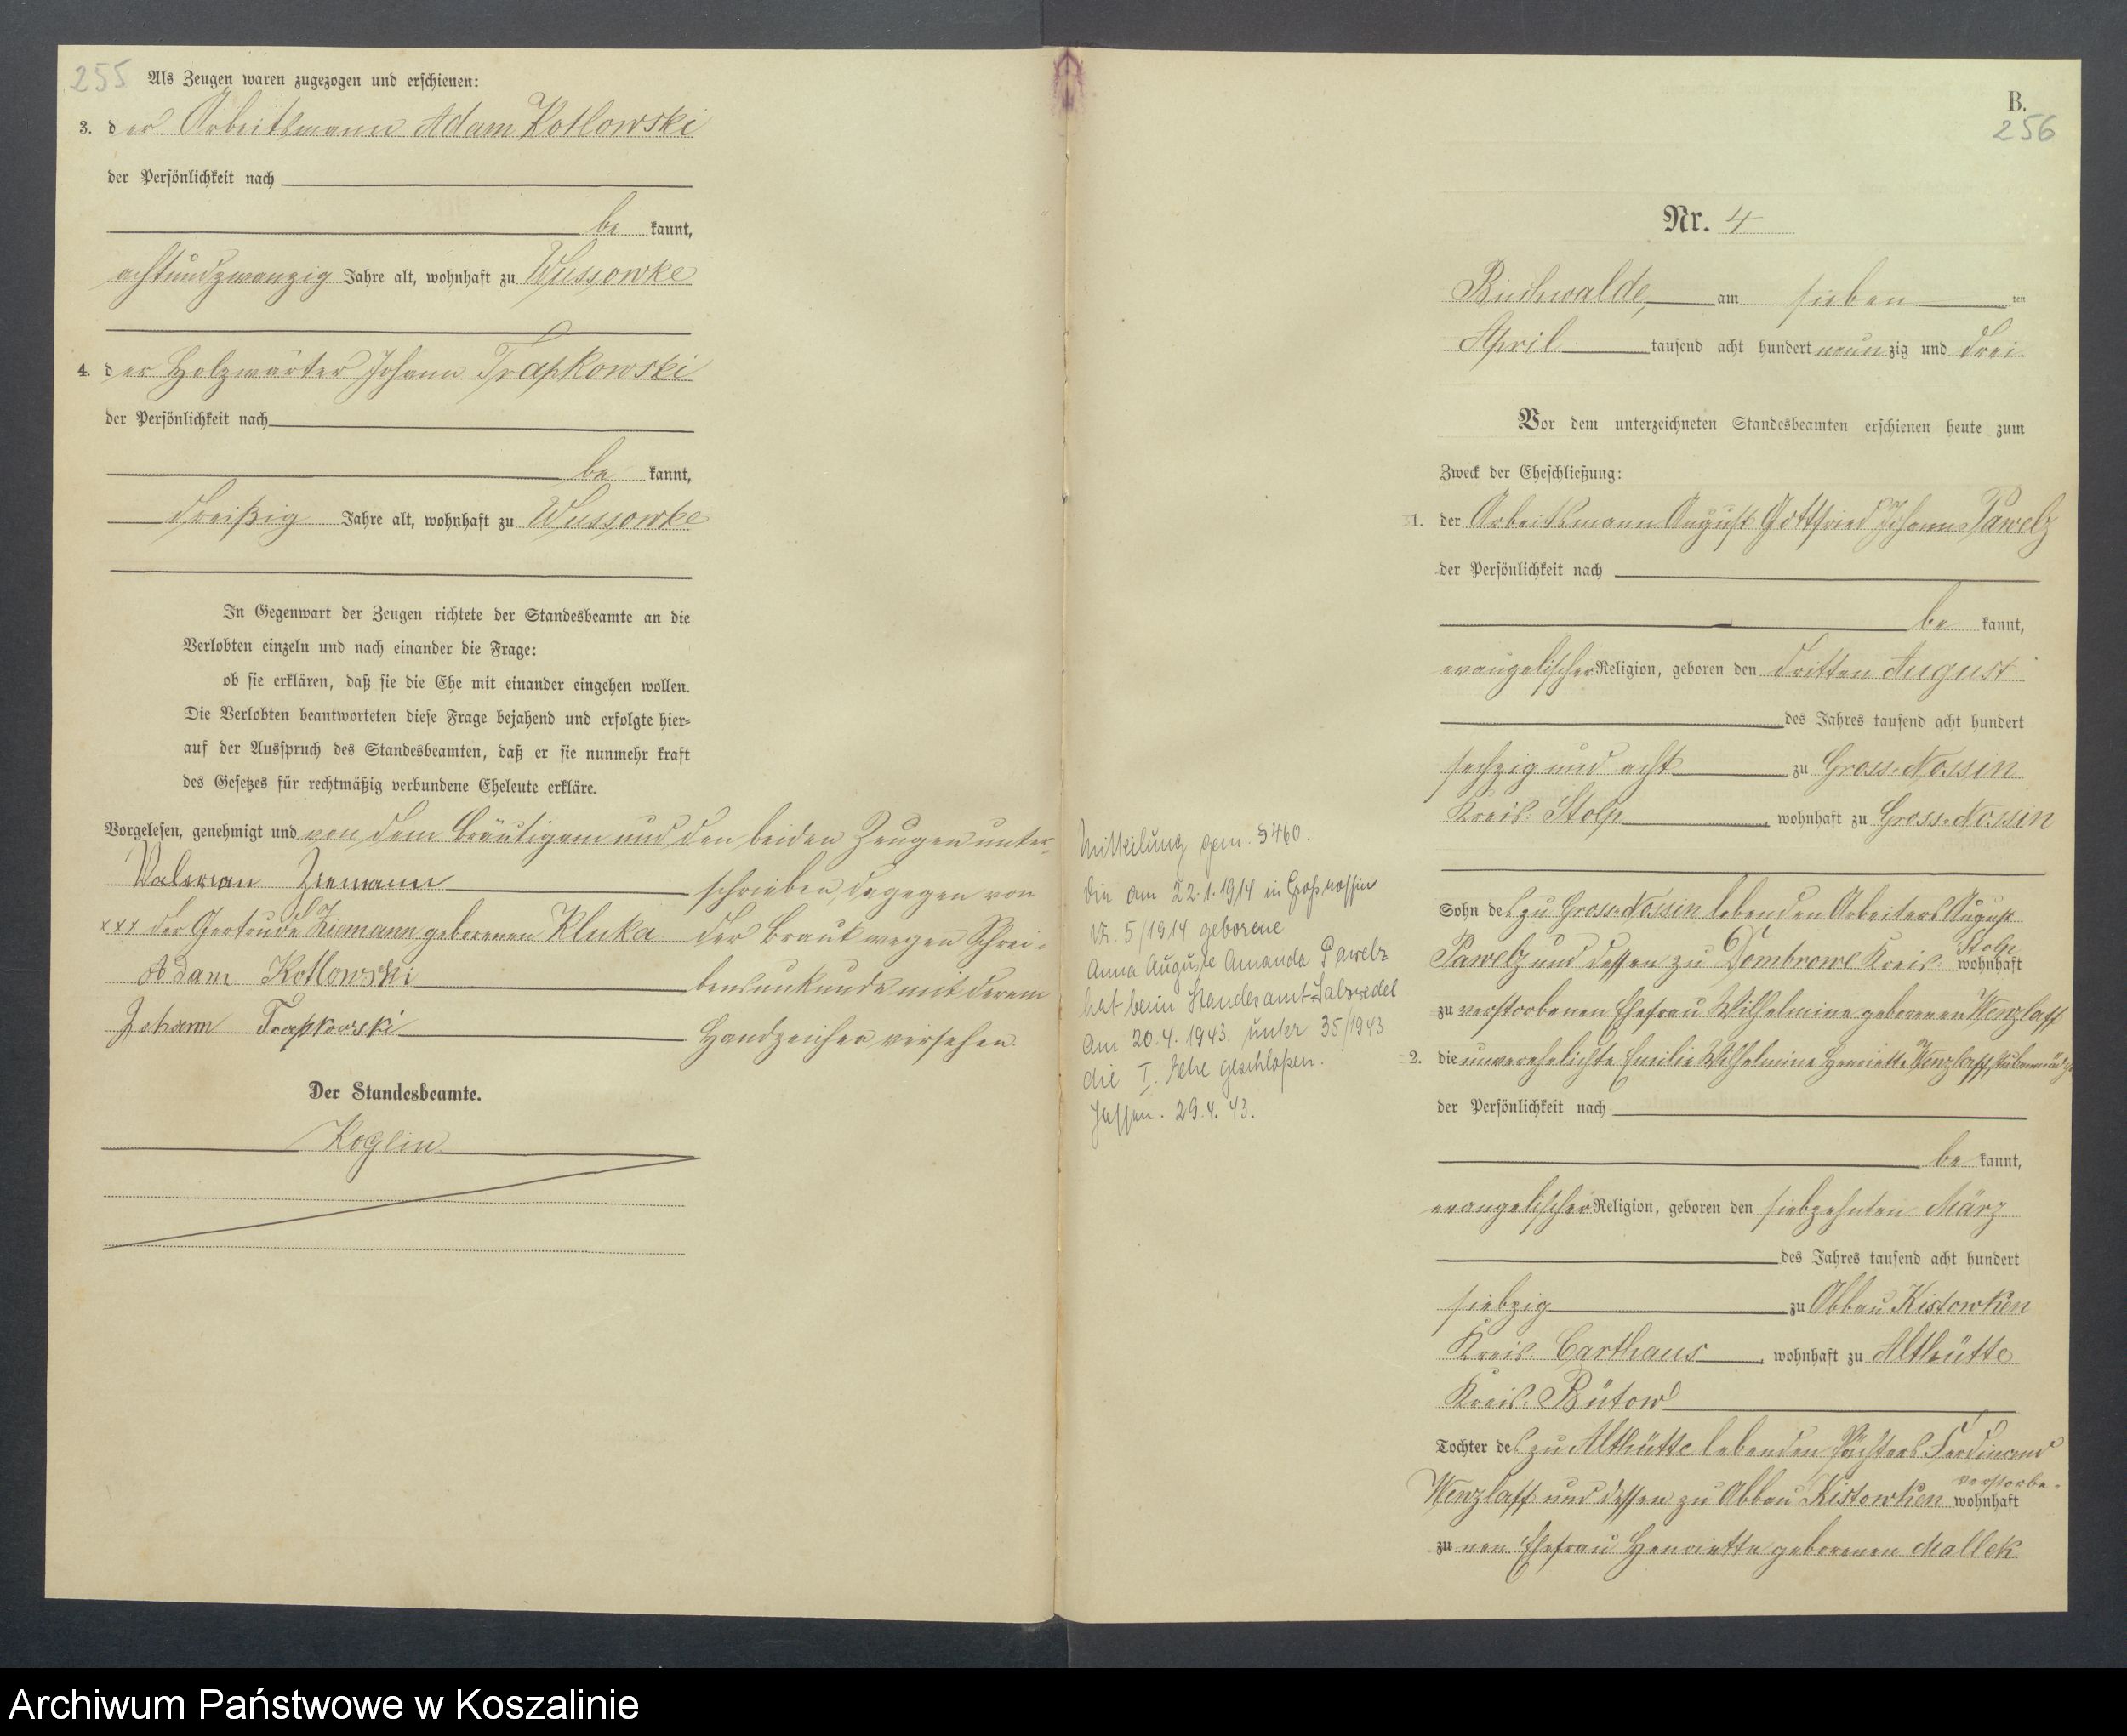 255
Als Zeugen waren zugezogen und erschienen:
3. der Arbeitsmann Adam Kotlowski
der Persönlichkeit nach
be kannt,
achtundzwanzig Jahre alt, wohnhaft zu Wussowke
4. der Holzwärter Johann Trapkowski
der Persönlichkeit nach
be kannt,
dreißig Jahre alt, wohnhaft zu Wussowke
In Gegenwart der Zeugen richtete der Standesbeamte an die
Verlobten einzeln und nach einander die Frage:
ob sie erklären, daß sie die Ehe mit einander eingehen wollen.
Die Verlobten beantworteten diese Frage bejahend und erfolgte hier=
auf der Ausspruch des Standesbeamten, daß er sie nunmehr kraft
des Gesetzes für rechtmäßig verbundene Eheleute erkläre.
Vorgelesen, genehmigt und von dem Bräutigam und den beiden Zeugen unter=
Valerian Ziemann schrieben, dagegen von
xxx der Gertrude Ziemann geborenen Kluka der Braut wegen Schrei=
Adam Kotlowski bensunkunde mit derem
Johann Trapkowski Handzeichen versehen.
Der Standesbeamte.
Koglin
B.
256
Nr. 4
Buchwalde, am sieben ten
April tausend acht hundert neunzig und drei
Vor dem unterzeichneten Standesbeamten erschienen heute zum
Zweck der Eheschließung:
1. der Arbeitsmann August Gottfried Johann Pawelz
der Persönlichkeit nach
be kannt,
evangelischer Religion, geboren den dritten August
des Jahres tausend acht hundert
sechzig und acht zu Gross-Nossin
Kreis Stolp, wohnhaft zu Gross-Nossin
Sohn des zu Gross-Nossin lebenden Arbeiters August
Pawelz und dessen zu Dombrowe Kreis Stolp wohnhaft
zu verstorbenen Ehefrau Wilhelmine geborenen Wenzlaff
2. die unverehelichte Emilie Wilhelmine Henriette Wenzlaff,
der Persönlichkeit nach
be kannt,
evangelischer Religion, geboren den siebzehnten März
des Jahres tausend acht hundert
siebzig zu Abbau Kistowken
Kreis Carthaus, wohnhaft zu Althütte
Kreis Bütow
Tochter des zu Althütte lebenden Pächters Ferdinand
Wenzlaff und dessen zu Abbau Kistowken verstorbe= wohnhaft
zu nen Ehefrau Henriette geborenen Mallek
Mitteilung gem. § 460.
Die am 22.1.1914 in Groß nossin
Nr. 5/1914 geborene
Anna Auguste Amanda Pawelz
hat beim Standesamt Salzwedel
am 20.4.1943. unter 35/1943
die I. Ehe geschloßen.
Jassen. 29.4.43.
Archiwum Państwowe w Koszalinie